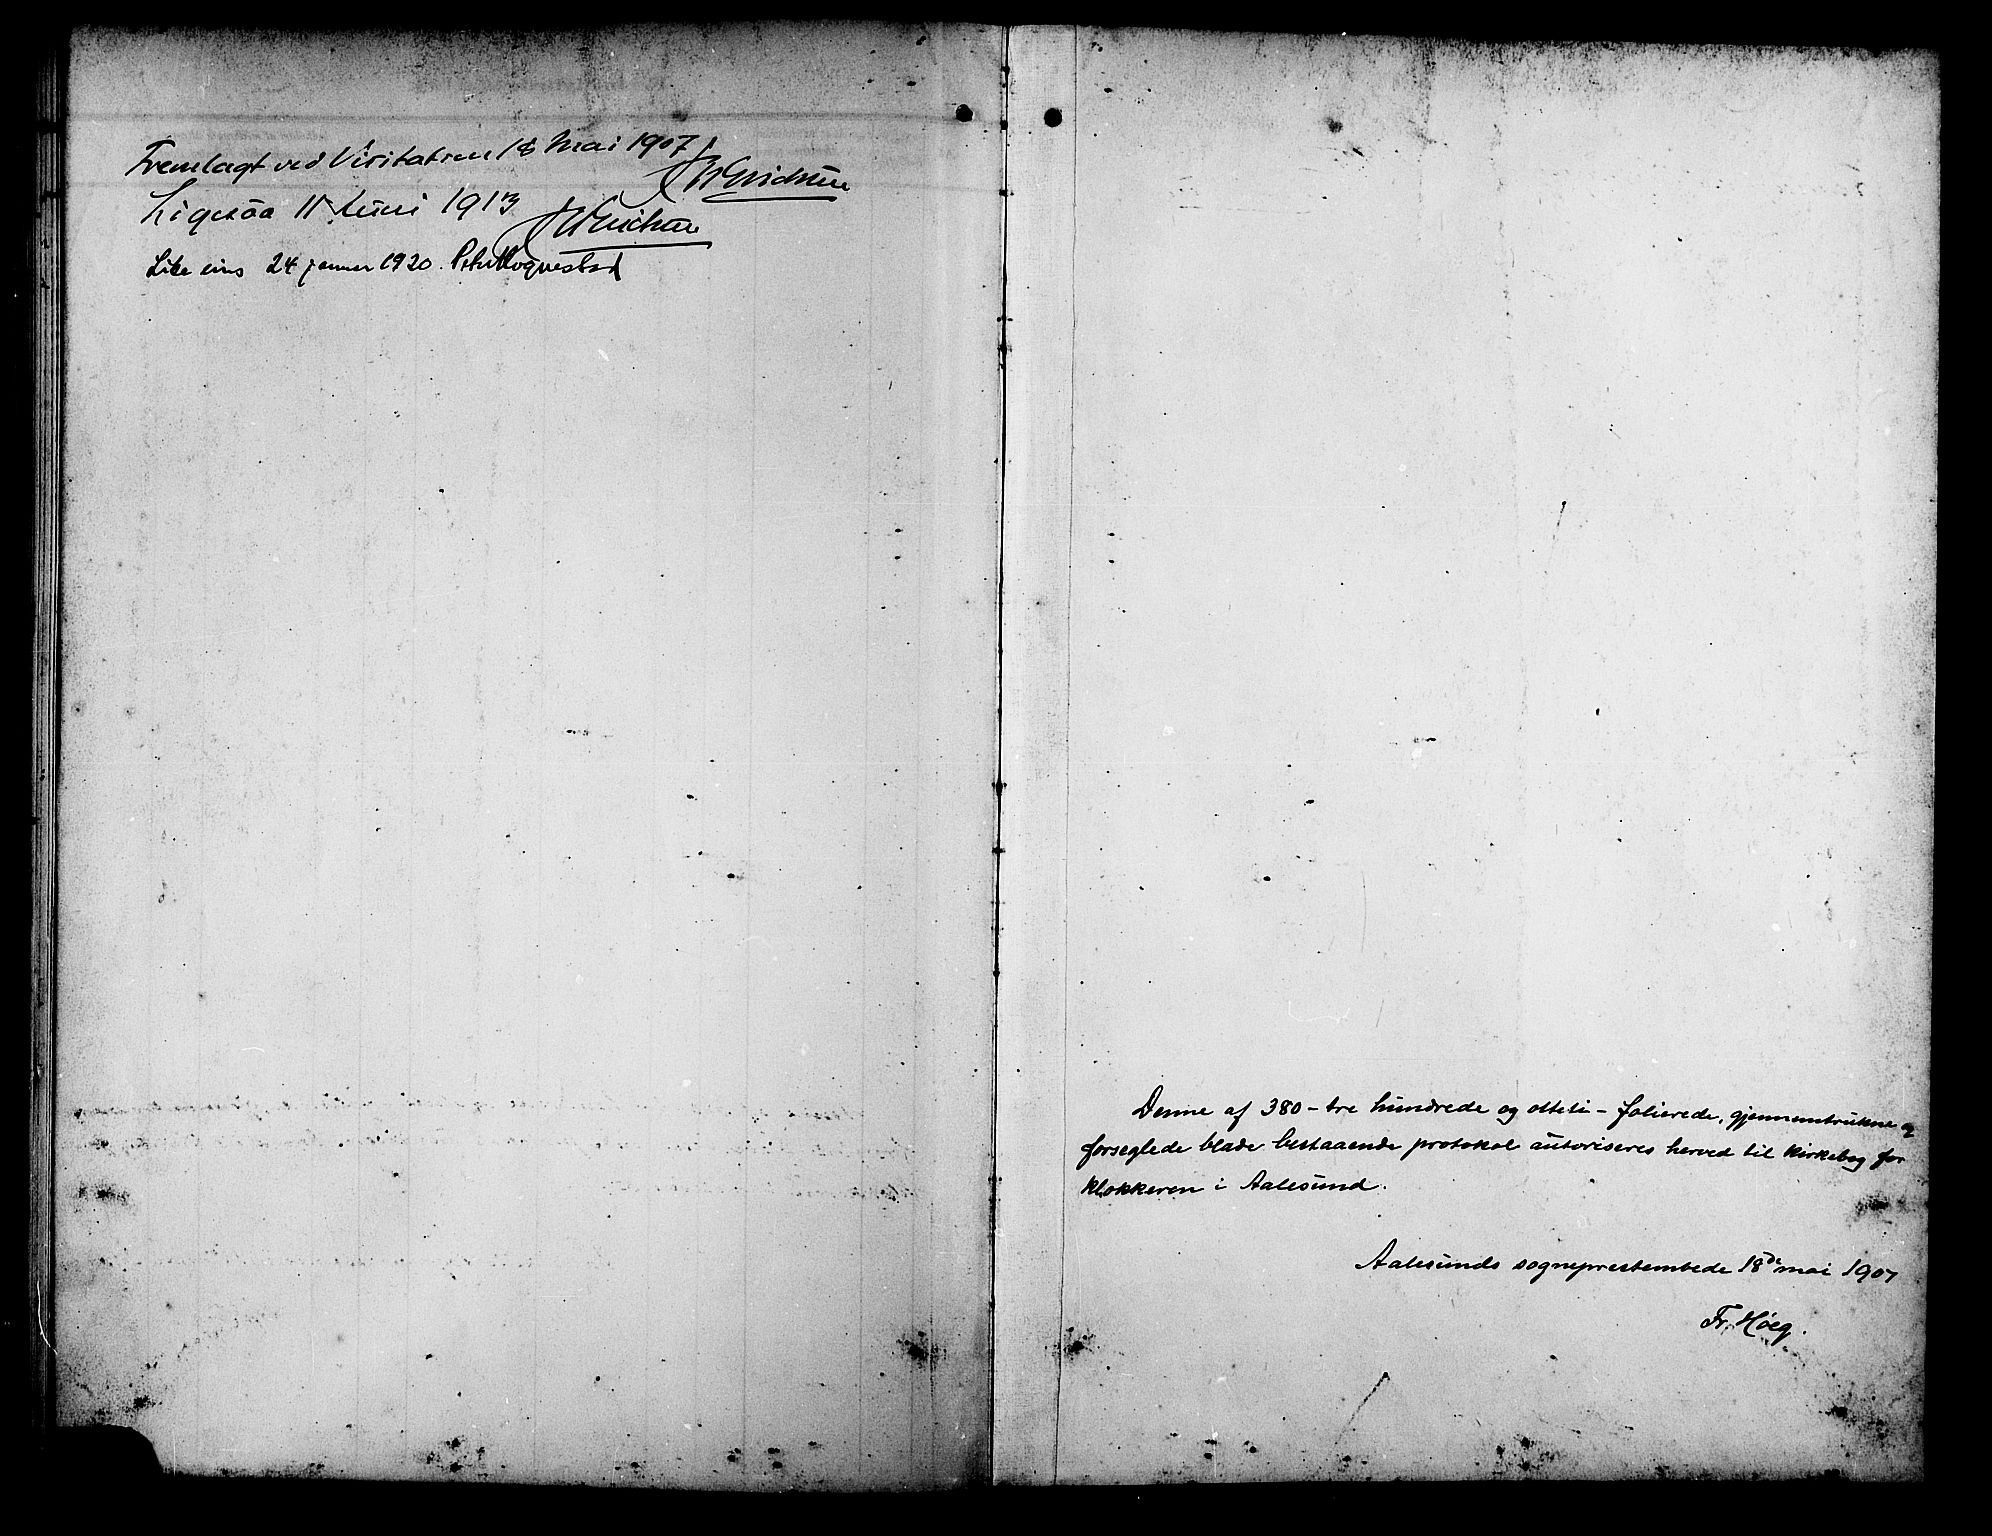 Fremlagt ved Visitatsen 18 Mai 1907
J W Erichsen
Ligesaa 11 Juni 1913
J W Erichsen
Like eins 24 januar 1920. Peter Hognestad
Denne af 380 – tre hundrede og otteti – folierede, gjennemtrukne og
forseglede blade bestaaende protokol autoriseres herved til kirkebog for
klokkeren i Aalesund.
Aalesunds sogneprestembede 18de mai 1907
Fr. Høeg.